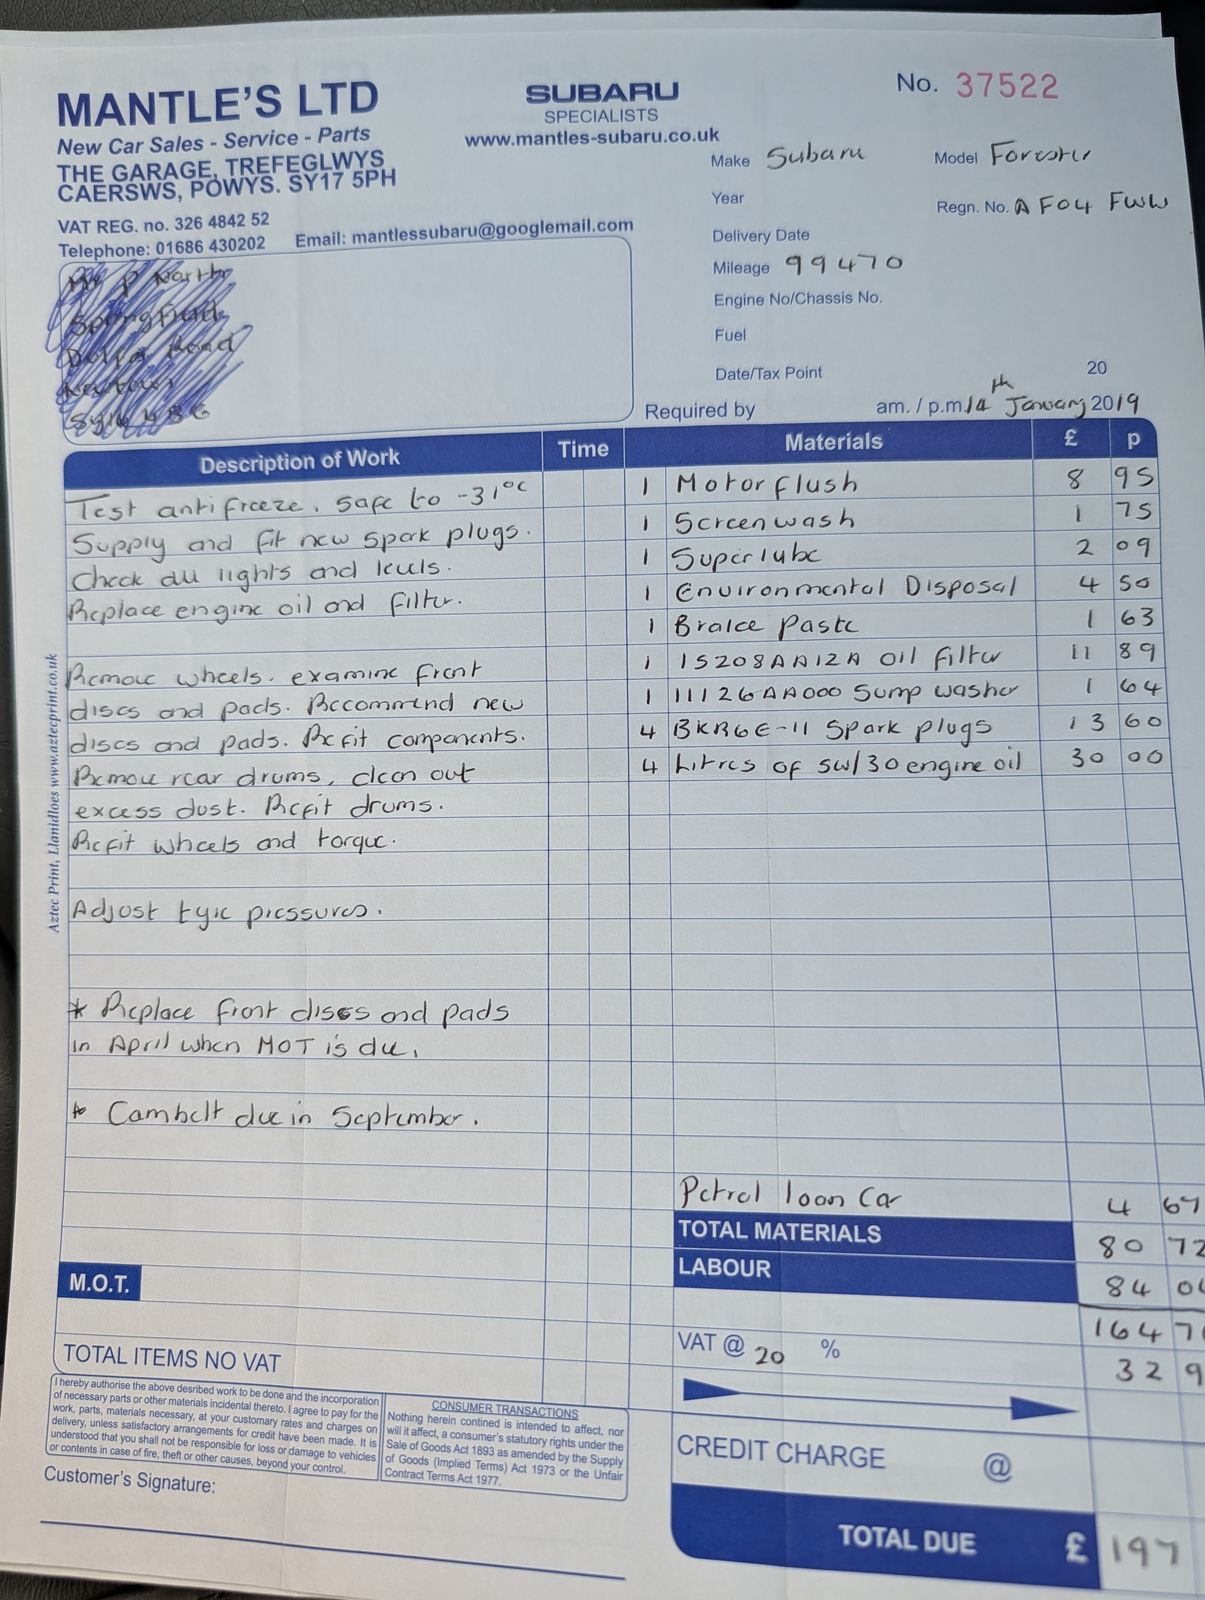 MANTLE'S LTD
New Car Sales - Service - Parts
THE GARAGE, TREFEGLWYS
CAERSWS, POWYS. SY17 5PH
VAT REG. no. 326 4842 52
Telephone: 01686 430202 Email: mantlessubaru@googlemail.com
SUBARU
SPECIALISTS
www.mantles-subaru.co.uk
No. 37522
Make Subaru Model Forester
Year Regn. No. AF04 FWW
Delivery Date
Mileage 99470
Engine No/Chassis No.
Fuel
Date/Tax Point 20
Required by am. / p.m. 14th January 2019
Description of Work Time Materials £ p
Test antifreeze. safe to -31°C
Supply and fit new spark plugs.
Check all lights and levels.
Replace engine oil and filter.
Remove wheels. examine front
discs and pads. Recommend new
discs and pads. Refit components.
Remove rear drums, clean out
excess dust. Refit drums.
Refit wheels and torque.
Adjust tyre pressures.
* Replace front discs and pads
in April when MOT is due.
* Cambelt due in September.
1 Motorflush 8 95
1 Screenwash 1 75
1 Superlube 2 09
1 Environmental Disposal 4 50
1 Brake Paste 1 63
1 15208AA12A oil filter 11 89
1 11126AA000 Sump washer 1 64
4 BKR6E-11 Spark plugs 13 60
4 Litres of 5W/30 engine oil 30 00
Petrol loan car 4 67
TOTAL MATERIALS 80 72
LABOUR 84 0
164 7
VAT @ 20 % 32 9
CREDIT CHARGE @
TOTAL DUE £ 197
M.O.T.
TOTAL ITEMS NO VAT
I hereby authorise the above desribed work to be done and the incorporation
of necessary parts or other materials incidental thereto. I agree to pay for the
work, parts, materials necessary, at your customary rates and charges on
delivery, unless satisfactory arrangements for credit have been made. It is
understood that you shall not be responsible for loss or damage to vehicles
or contents in case of fire, theft or other causes, beyond your control.
CONSUMER TRANSACTIONS
Nothing herein contined is intended to affect, nor
will it affect, a consumer's statutory rights under the
Sale of Goods Act 1893 as amended by the Supply
of Goods (Implied Terms) Act 1973 or the Unfair
Contract Terms Act 1977.
Customer's Signature:
Aztec Print, Llanidloes www.aztecprint.co.uk